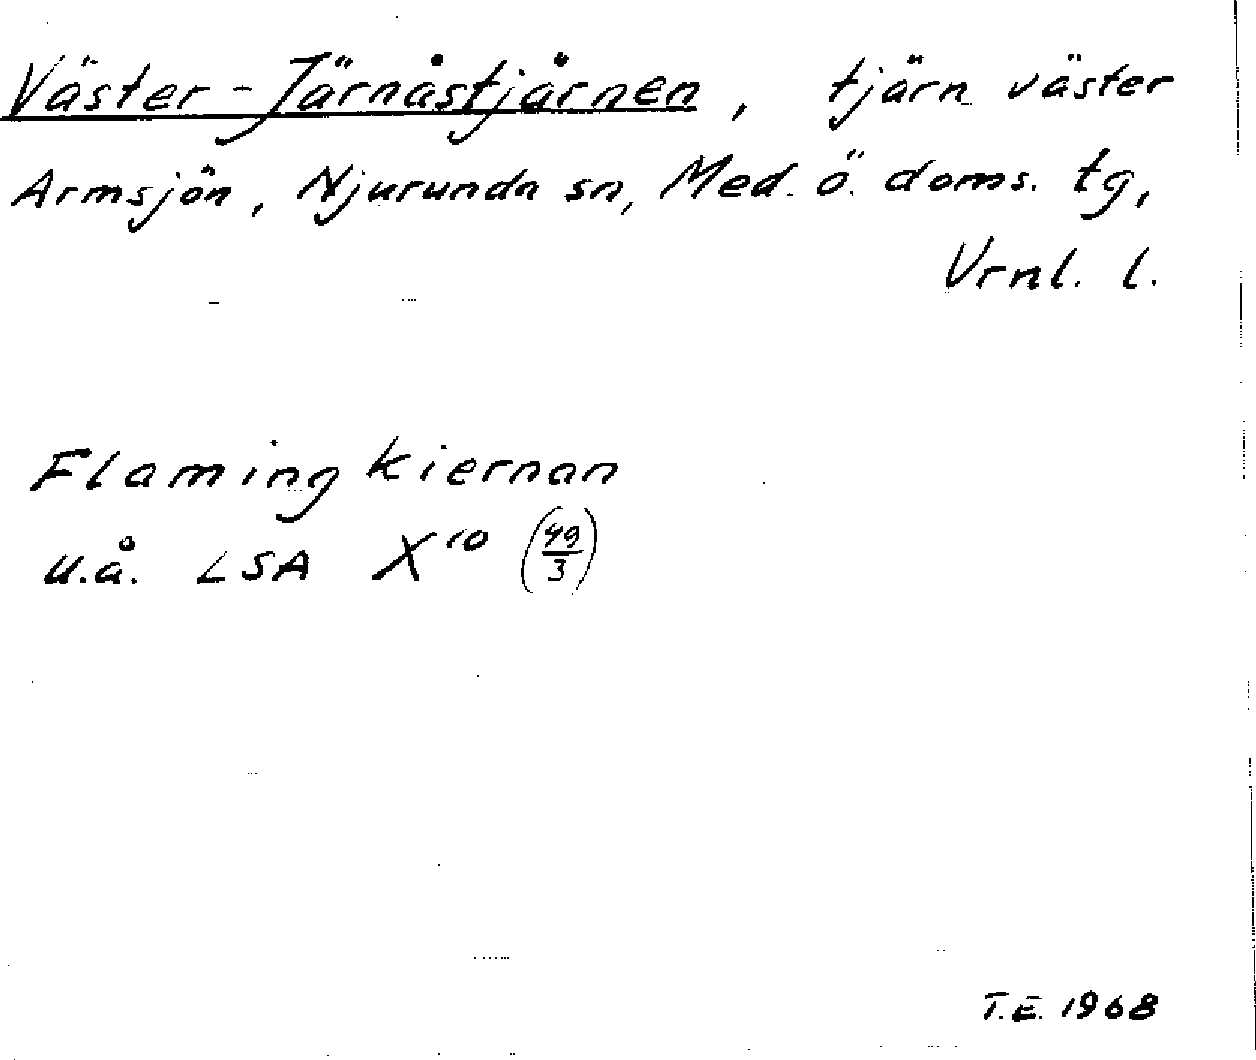 Väster-Järnåstjärnen, tjärn väster
Armsjön, Njurunda sn, Med. ö. doms. tg,
Vrnl. l.
Flamingkiernan
u.å. LSA X¹⁰ (49/3)
T.E. 1968